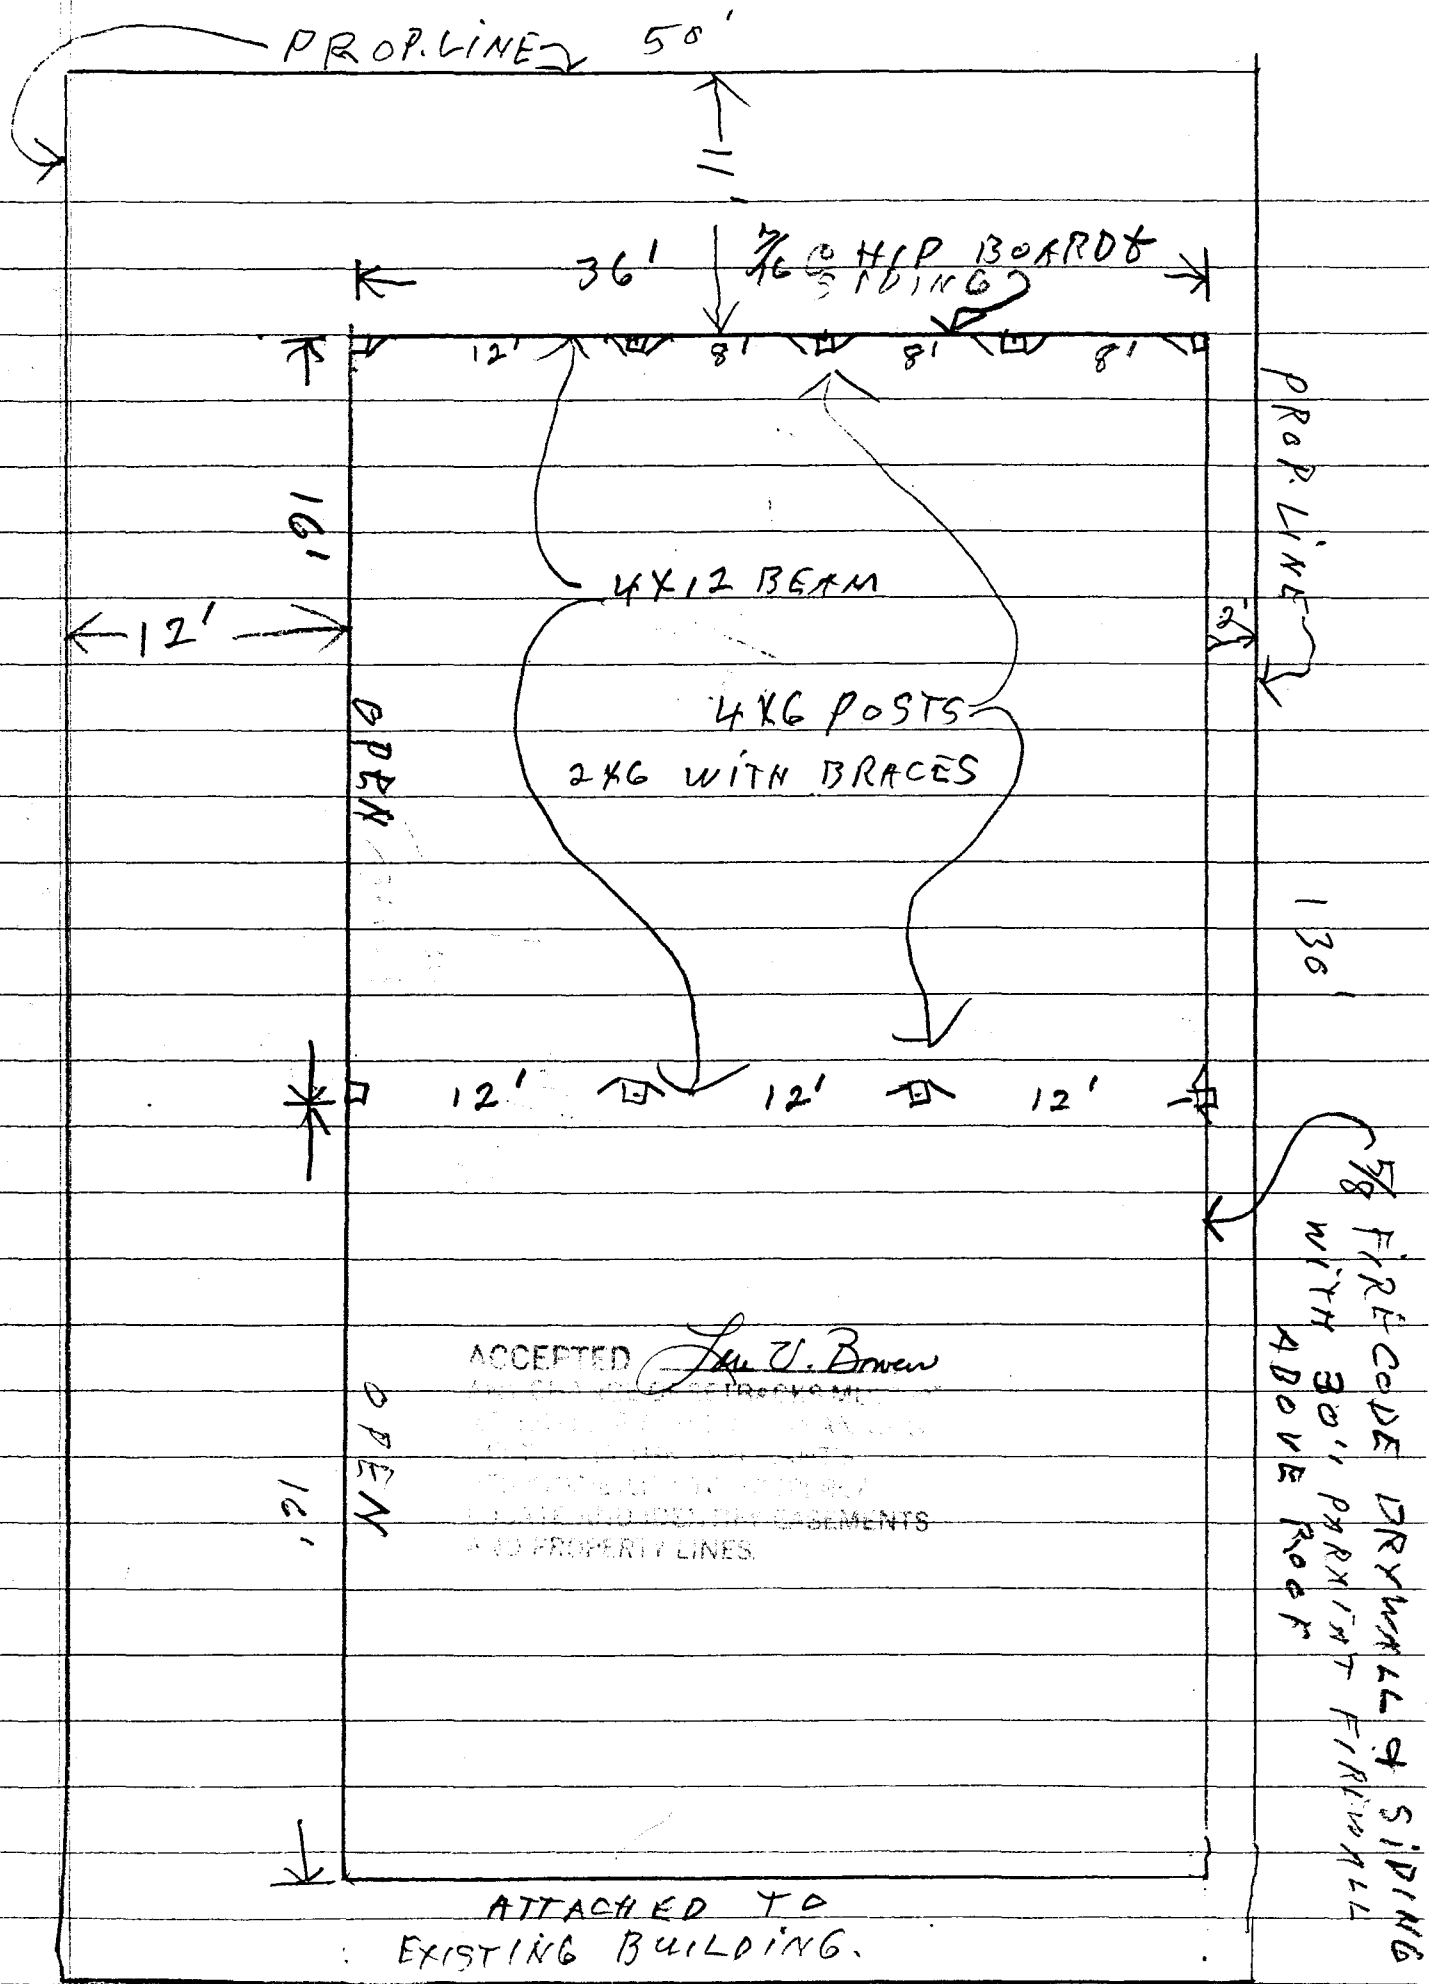 PROP. LINE 50'
11'
36' 7/16 CHIP BOARD &
SIDING
12' 8' 8' 8'
PROP. LINE
16'
4X12 BEAM
12'
2'
4X6 POSTS
2X6 WITH BRACES
OPEN
130'
12' 12' 12'
5/8 FIRECODE DRYWALL & SIDING
WITH 30" PARXINT FIREWALL
ABOVE ROOF
ACCEPTED
OPEN
16'
LOCATE AND IDENTIFY EASEMENTS
AND PROPERTY LINES.
ATTACHED TO
EXISTING BUILDING.